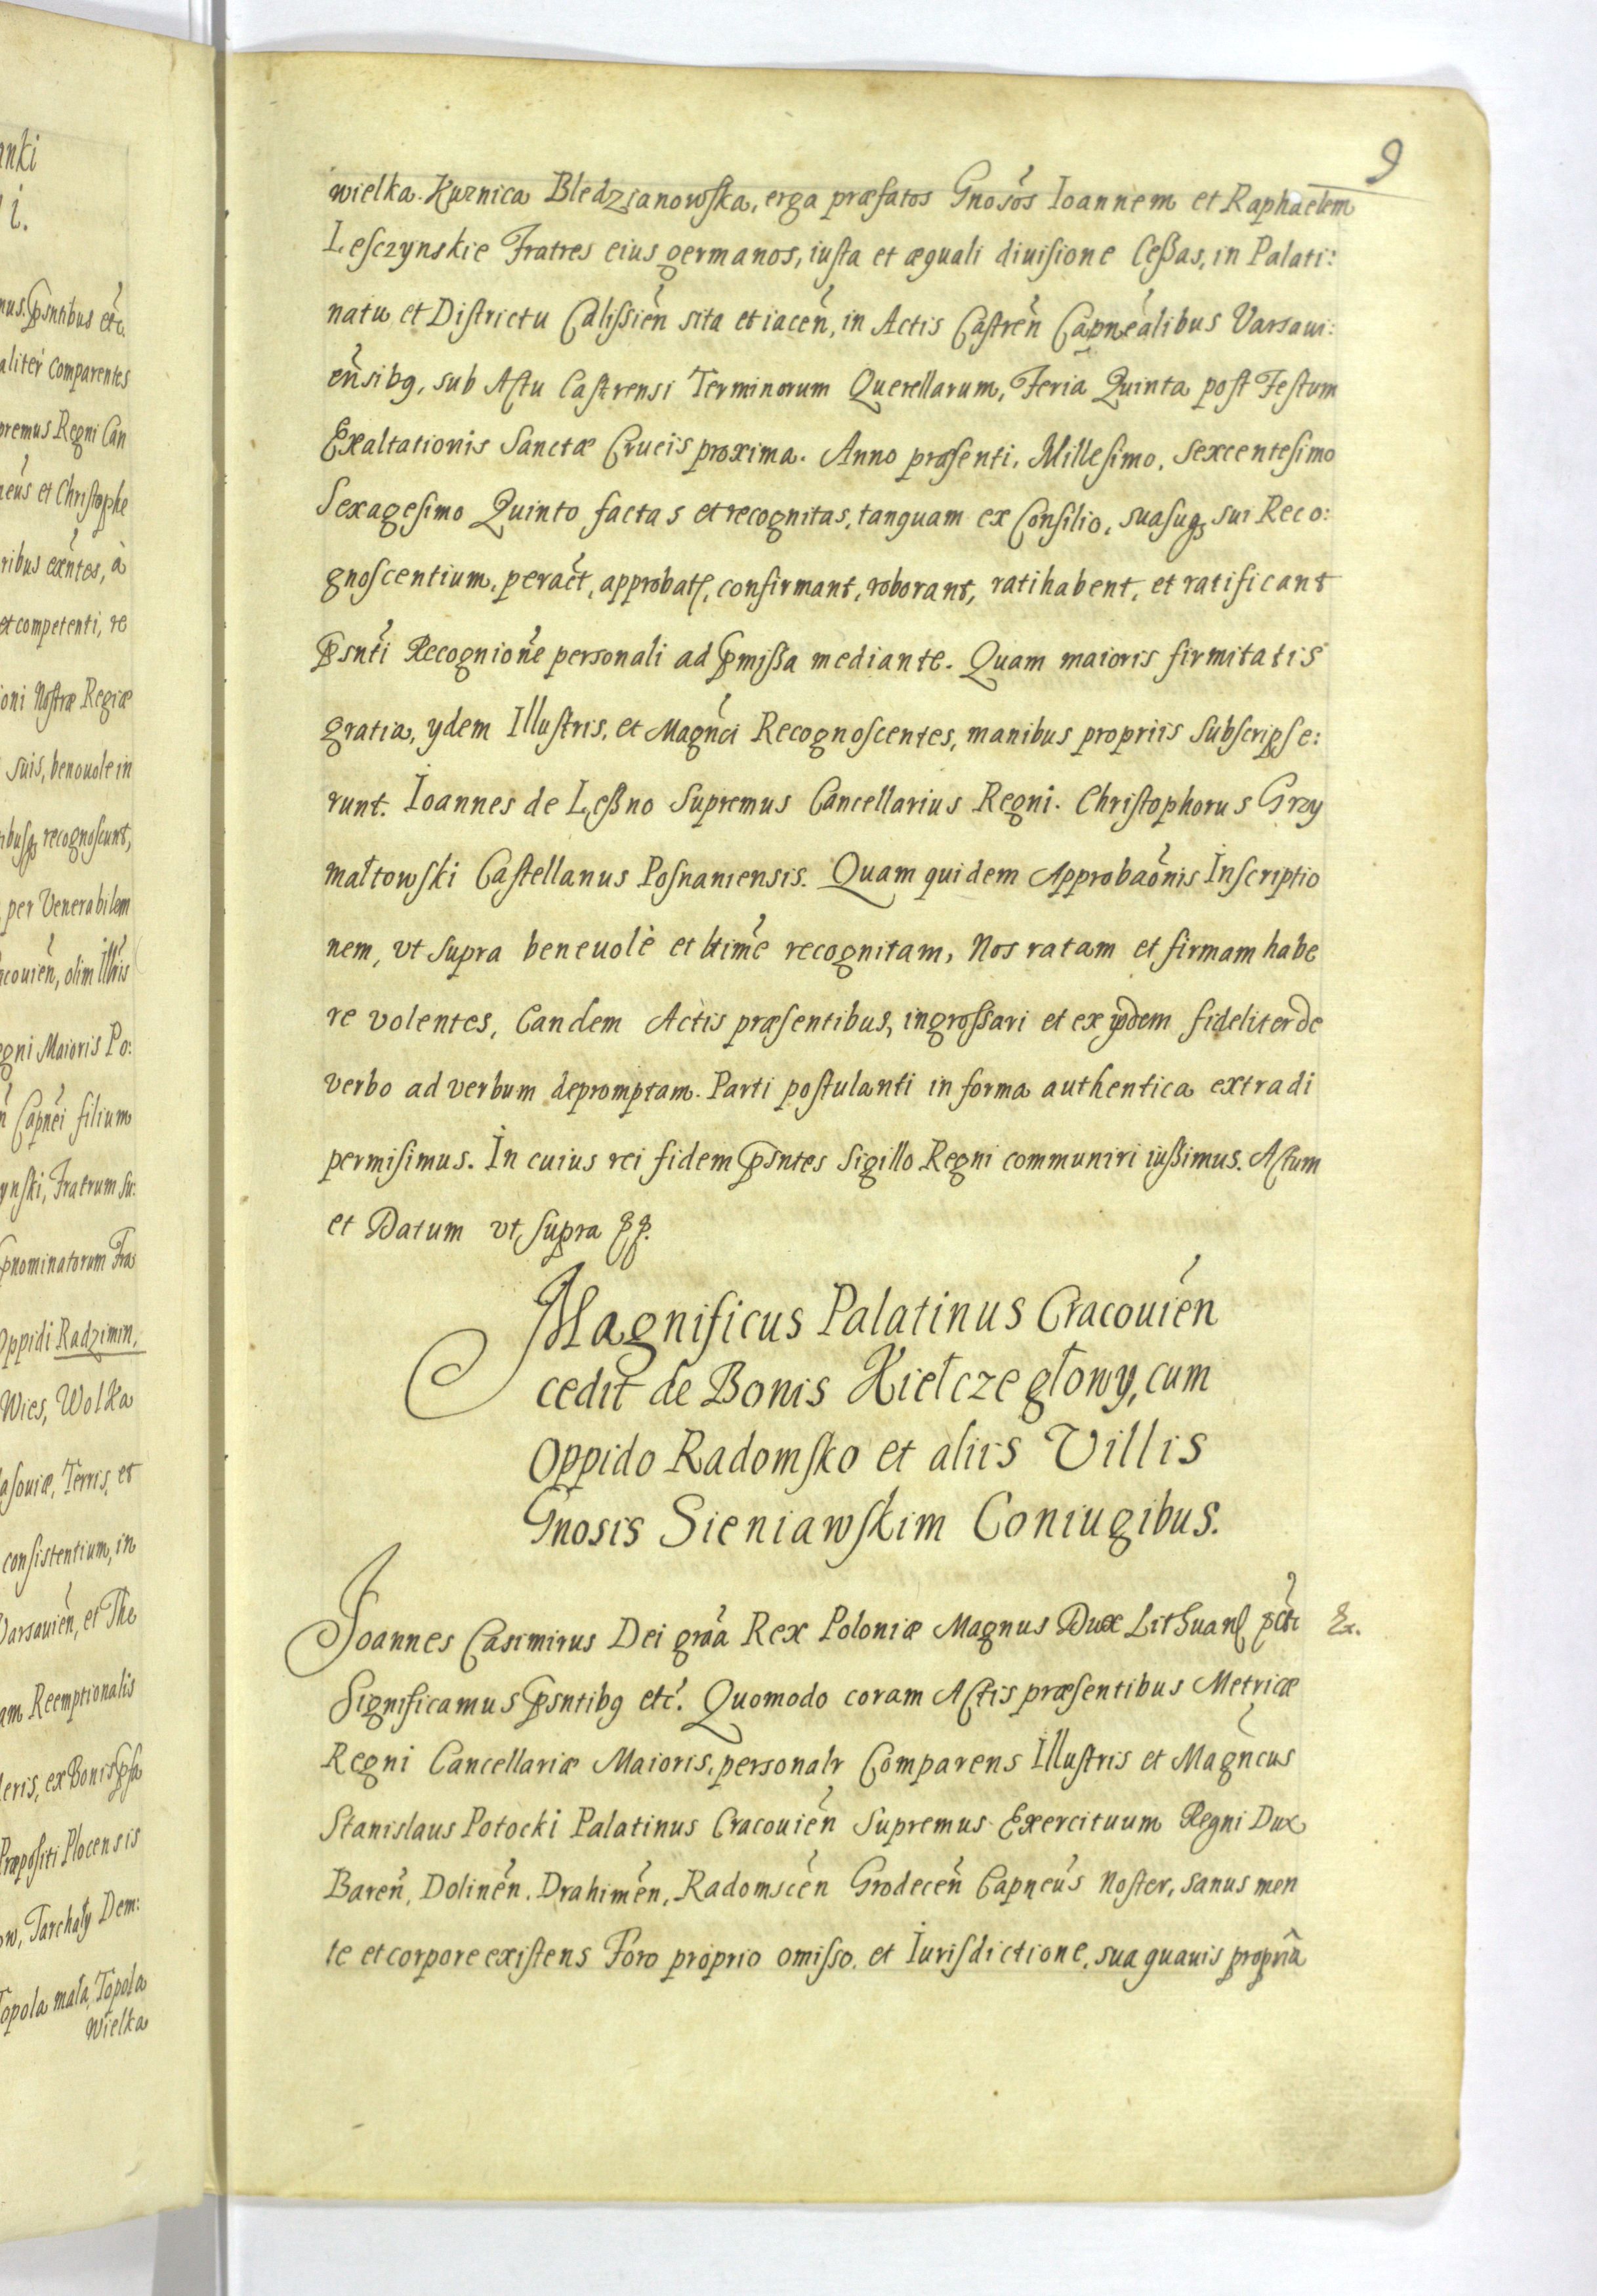 anki
i.
nus. Psntibus etc.
aliter comparentes
premus Regni Can
neus et Christophe
ribus exntes, à
et competenti, re
ioni Nostræ Regiæ
suis, benouole in
ibusq recognoscunt,
per Venerabilem
acouien, olim Illris
egni Maioris Po:
n Capnei filium
ynski, Fratrum su:
pnominatorum Fra
Oppidi Radzimin,
Wies, Wolka
asouiæ, Terris, et
consistentium, in
Varsauien, et The
am Reemptionalis
leris, ex Bonis
Præpositi Plocensis
ow, Tarchały Dem:
Topola mała, Topola
wielka
9
wielka. Kuznica Bledzianowska, erga præfatos Gnosos Ioannem et Raphaelem
Lesczynskie Fratres eius germanos, iusta et æquali diuisione Cessas, in Palati:
natu et Districtu Calissien sita et iacen, in Actis Castren Capnealibus Varsaui:
ensibq, sub Actu Castrensi Terminorum Querellarum, Feria Quinta post Festum
Exaltationis Sanctæ Crucis proxima. Anno præsenti, Millesimo, sexcentesimo
Sexagesimo Quinto factas et recognitas, tanquam ex Consilio, suasuq sui Reco:
gnoscentium, peract, approbat, confirmant, roborant, ratihabent, et ratificant
Psnti Recognione personali ad Pmissa mediante. Quam maioris firmitatis
gratia, ydem Illustris, et Magnci Recognoscentes, manibus propriis subscripse:
runt. Ioannes de Lessno Supremus Cancellarius Regni. Christophorus Grzy
małtowski Castellanus Posnaniensis. Quam quidem Approbaonis Inscriptio
nem, vt supra beneuolè et ltime recognitam, Nos ratam et firmam habe
re volentes, Eandem Actis præsentibus, ingrossari et ex ijsdem fideliter de
verbo ad verbum depromptam. Parti postulanti in forma authentica extradi
permisimus. In cuius rei fidem Psntes Sigillo Regni communiri iussimus. Actum
et Datum vt supra
Magnificus Palatinus Cracouien
cedit de Bonis Kiełczegłowy, cum
Oppido Radomsko et aliis Villis
Gnosis Sieniawskim Coniugibus.
Ioannes Casimirus Dei graa Rex Poloniæ Magnus Dux Lithuan pct Ex.
Significamus Psntibq etc. Quomodo coram Actis præsentibus Metricæ
Regni Cancellariæ Maioris, personalr Comparens Illustris et Magncus
Stanislaus Potocki Palatinus Cracouien Supremus Exercituum Regni Dux
Baren, Dolinen. Drahimen, Radomscen Grodecen Capneus Noster, sanus men
te et corpore existens Foro proprio omisso, et Iurisdictione, sua quauis propria